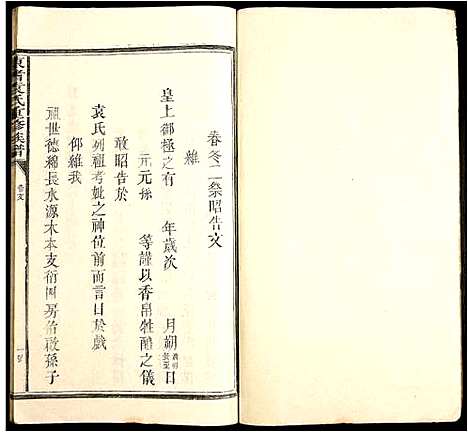 春冬二祭昭告文
維
皇上御極之有　年歲次　月朔　日
元元孫　等謹以香帛牲醴之儀
敢昭告於
袁氏列祖考妣之神位前而言曰於戲
仰維我
祖世德綿長水源木本支衍閥房佑啟孫子
袁氏重修族譜